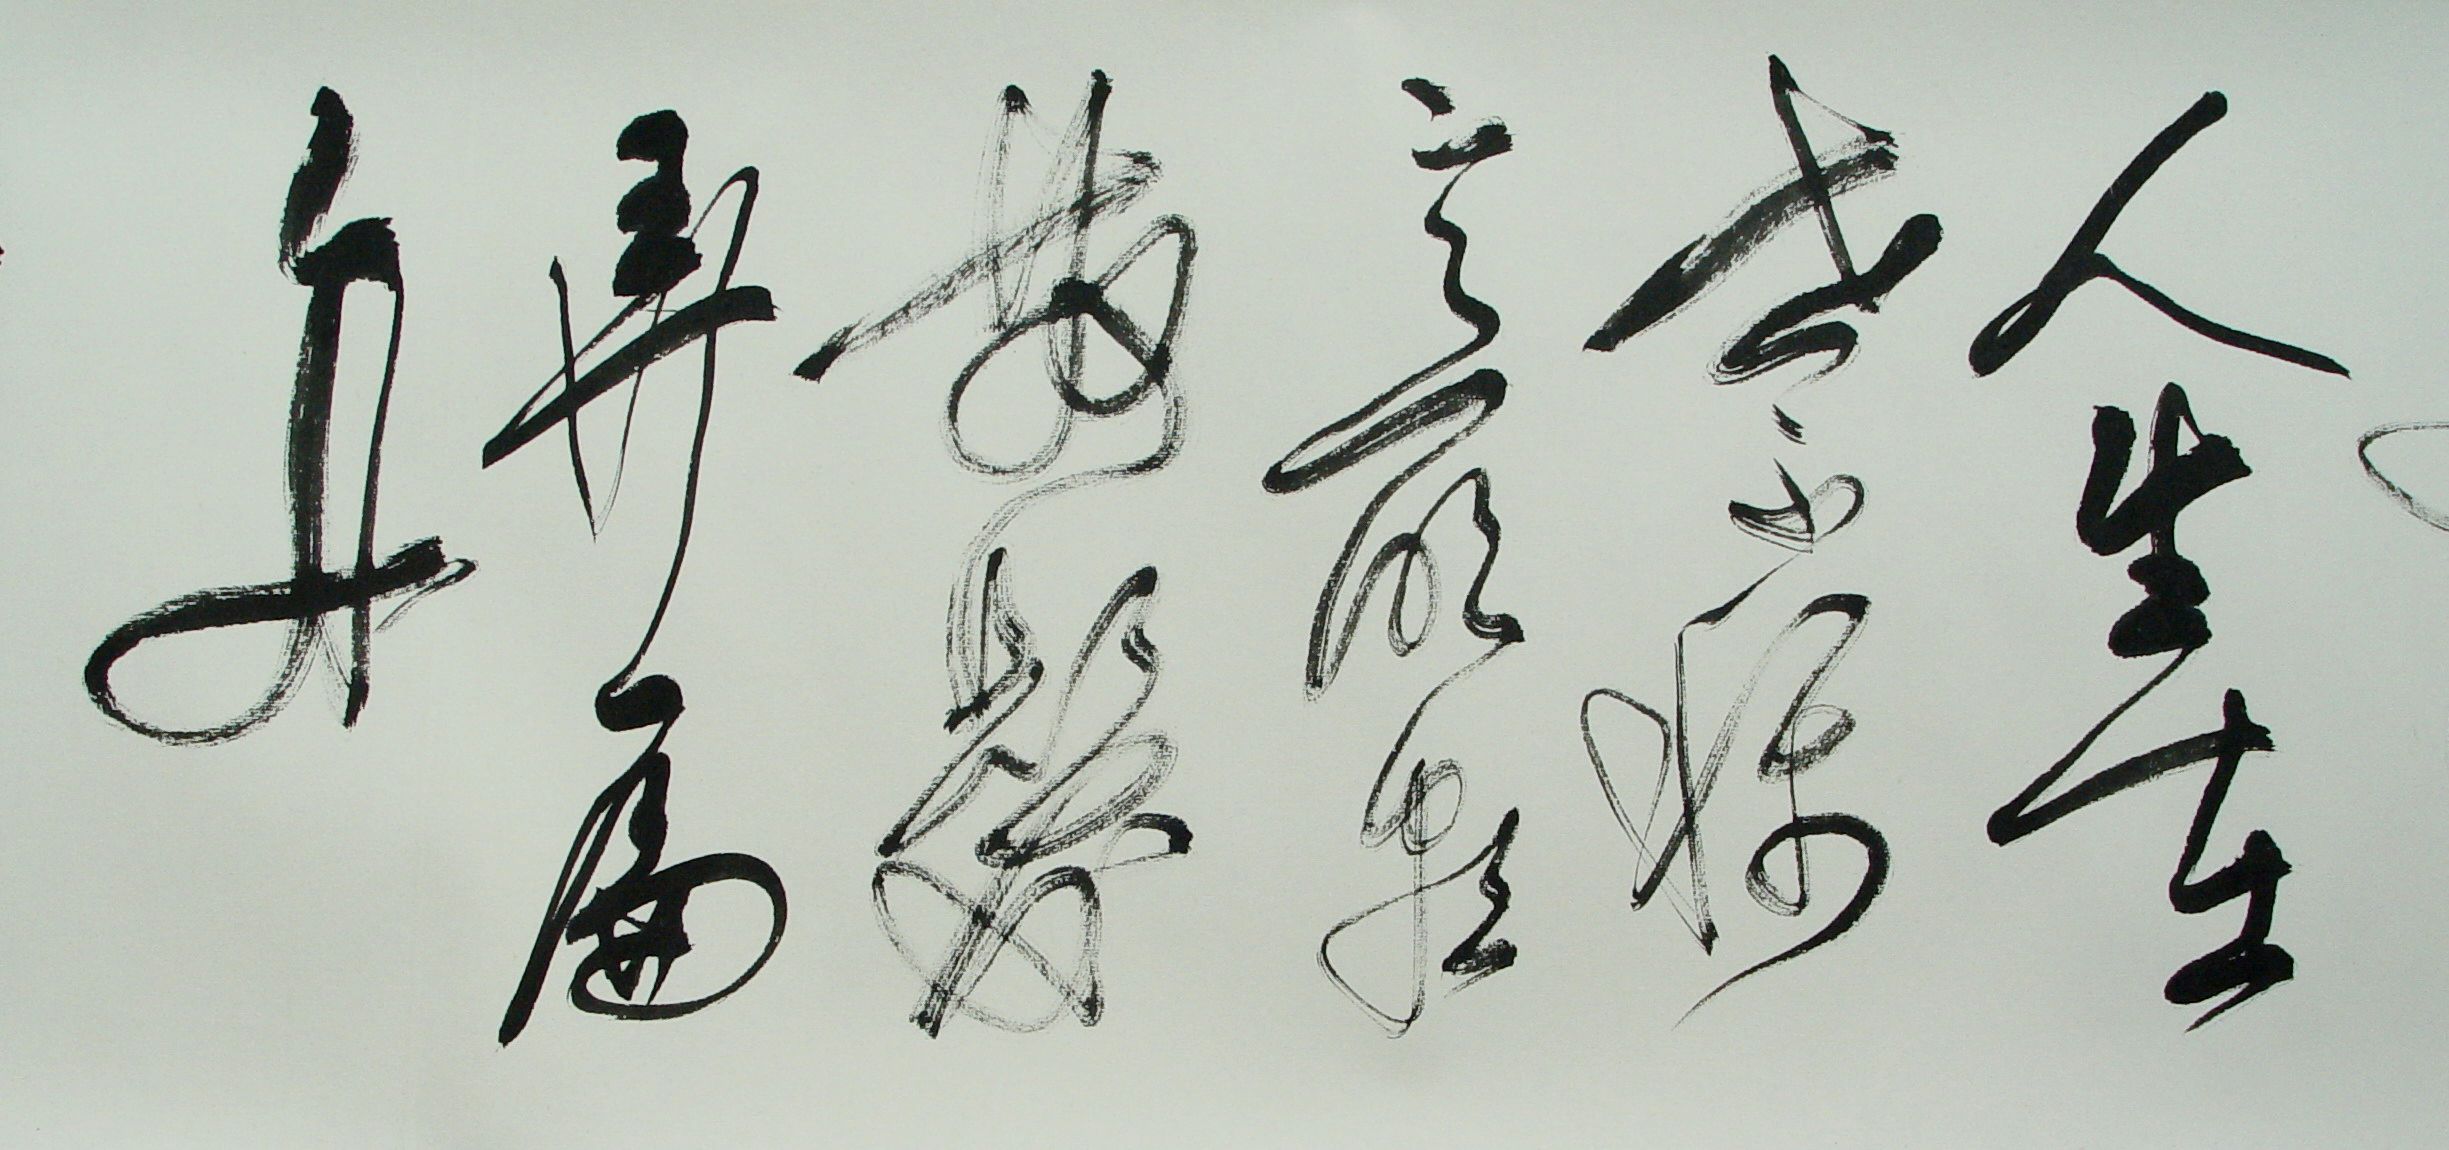 人生在
世不称
意明朝
散髮
弄扁
舟